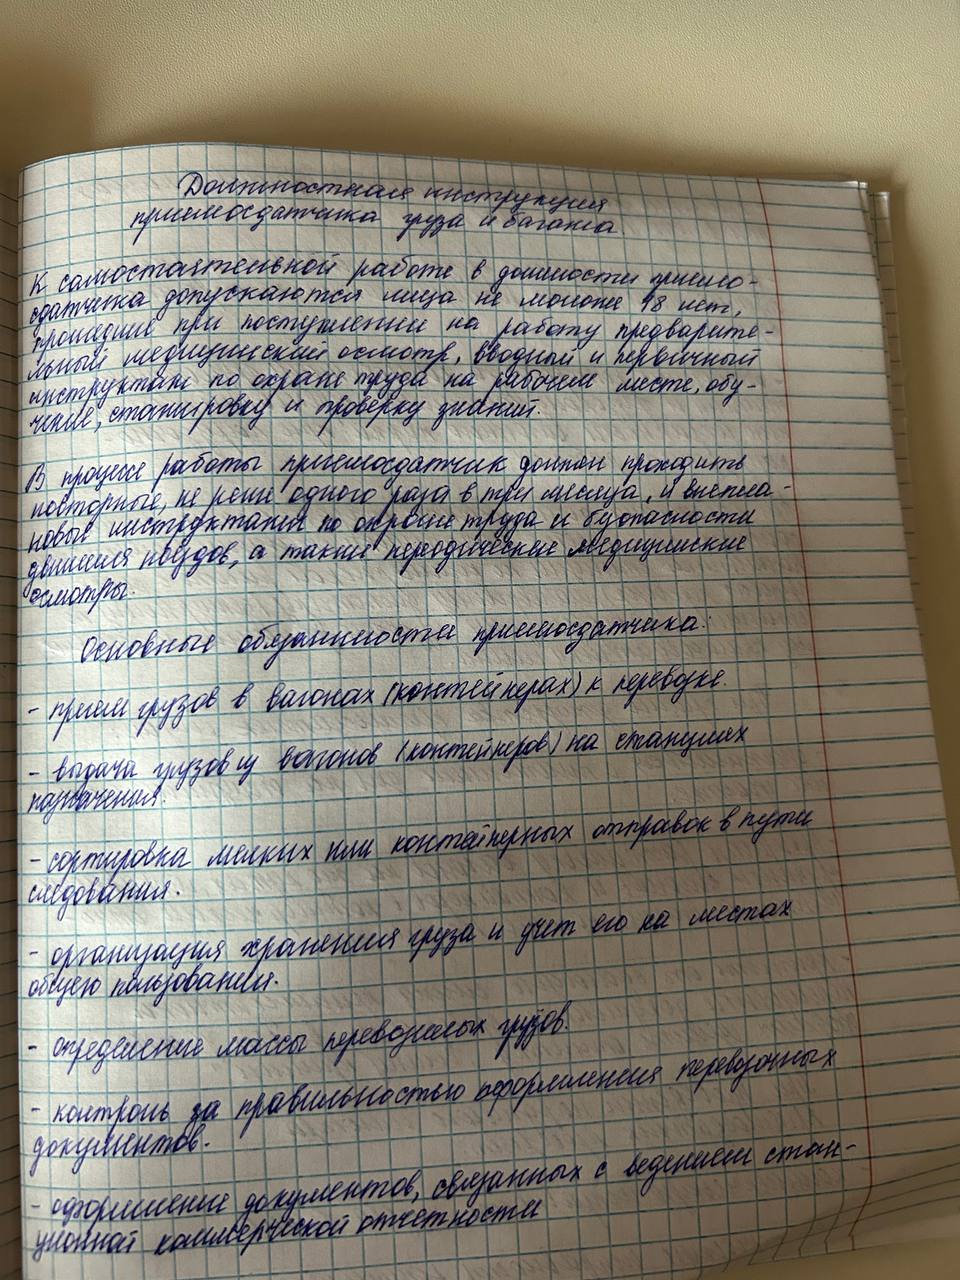 Должностная инструкция
приемосдатчика груза и багажа
К самостоятельной работе в должности приемо-
сдатчика допускаются лица не моложе 18 лет,
прошедшие при поступлении на работу предварите-
льный медицинский осмотр, вводный и первичный
инструктаж по охране труда на рабочем месте, обу-
чение, стажировку и проверку знаний.
В процессе работы приемосдатчик должен проходить
повторные, не реже одного раза в три месяца, и внепла-
новые инструктажи по охране труда и безопасности
движения поездов, а также периодические медицинские
осмотры.
Основные обязанности приемосдатчика:
- прием грузов в вагонах (контейнерах) к перевозке.
- выдача грузов из вагонов (контейнеров) на станциях
назначения.
- сортировка мелких или контейнерных отправок в пути
следования.
- организация хранения груза и учет его на местах
общего пользования.
- определение массы перевозимых грузов.
- контроль за правильностью оформления перевозочных
документов.
- оформление документов, связанных с ведением стан-
ционной коммерческой отчетности